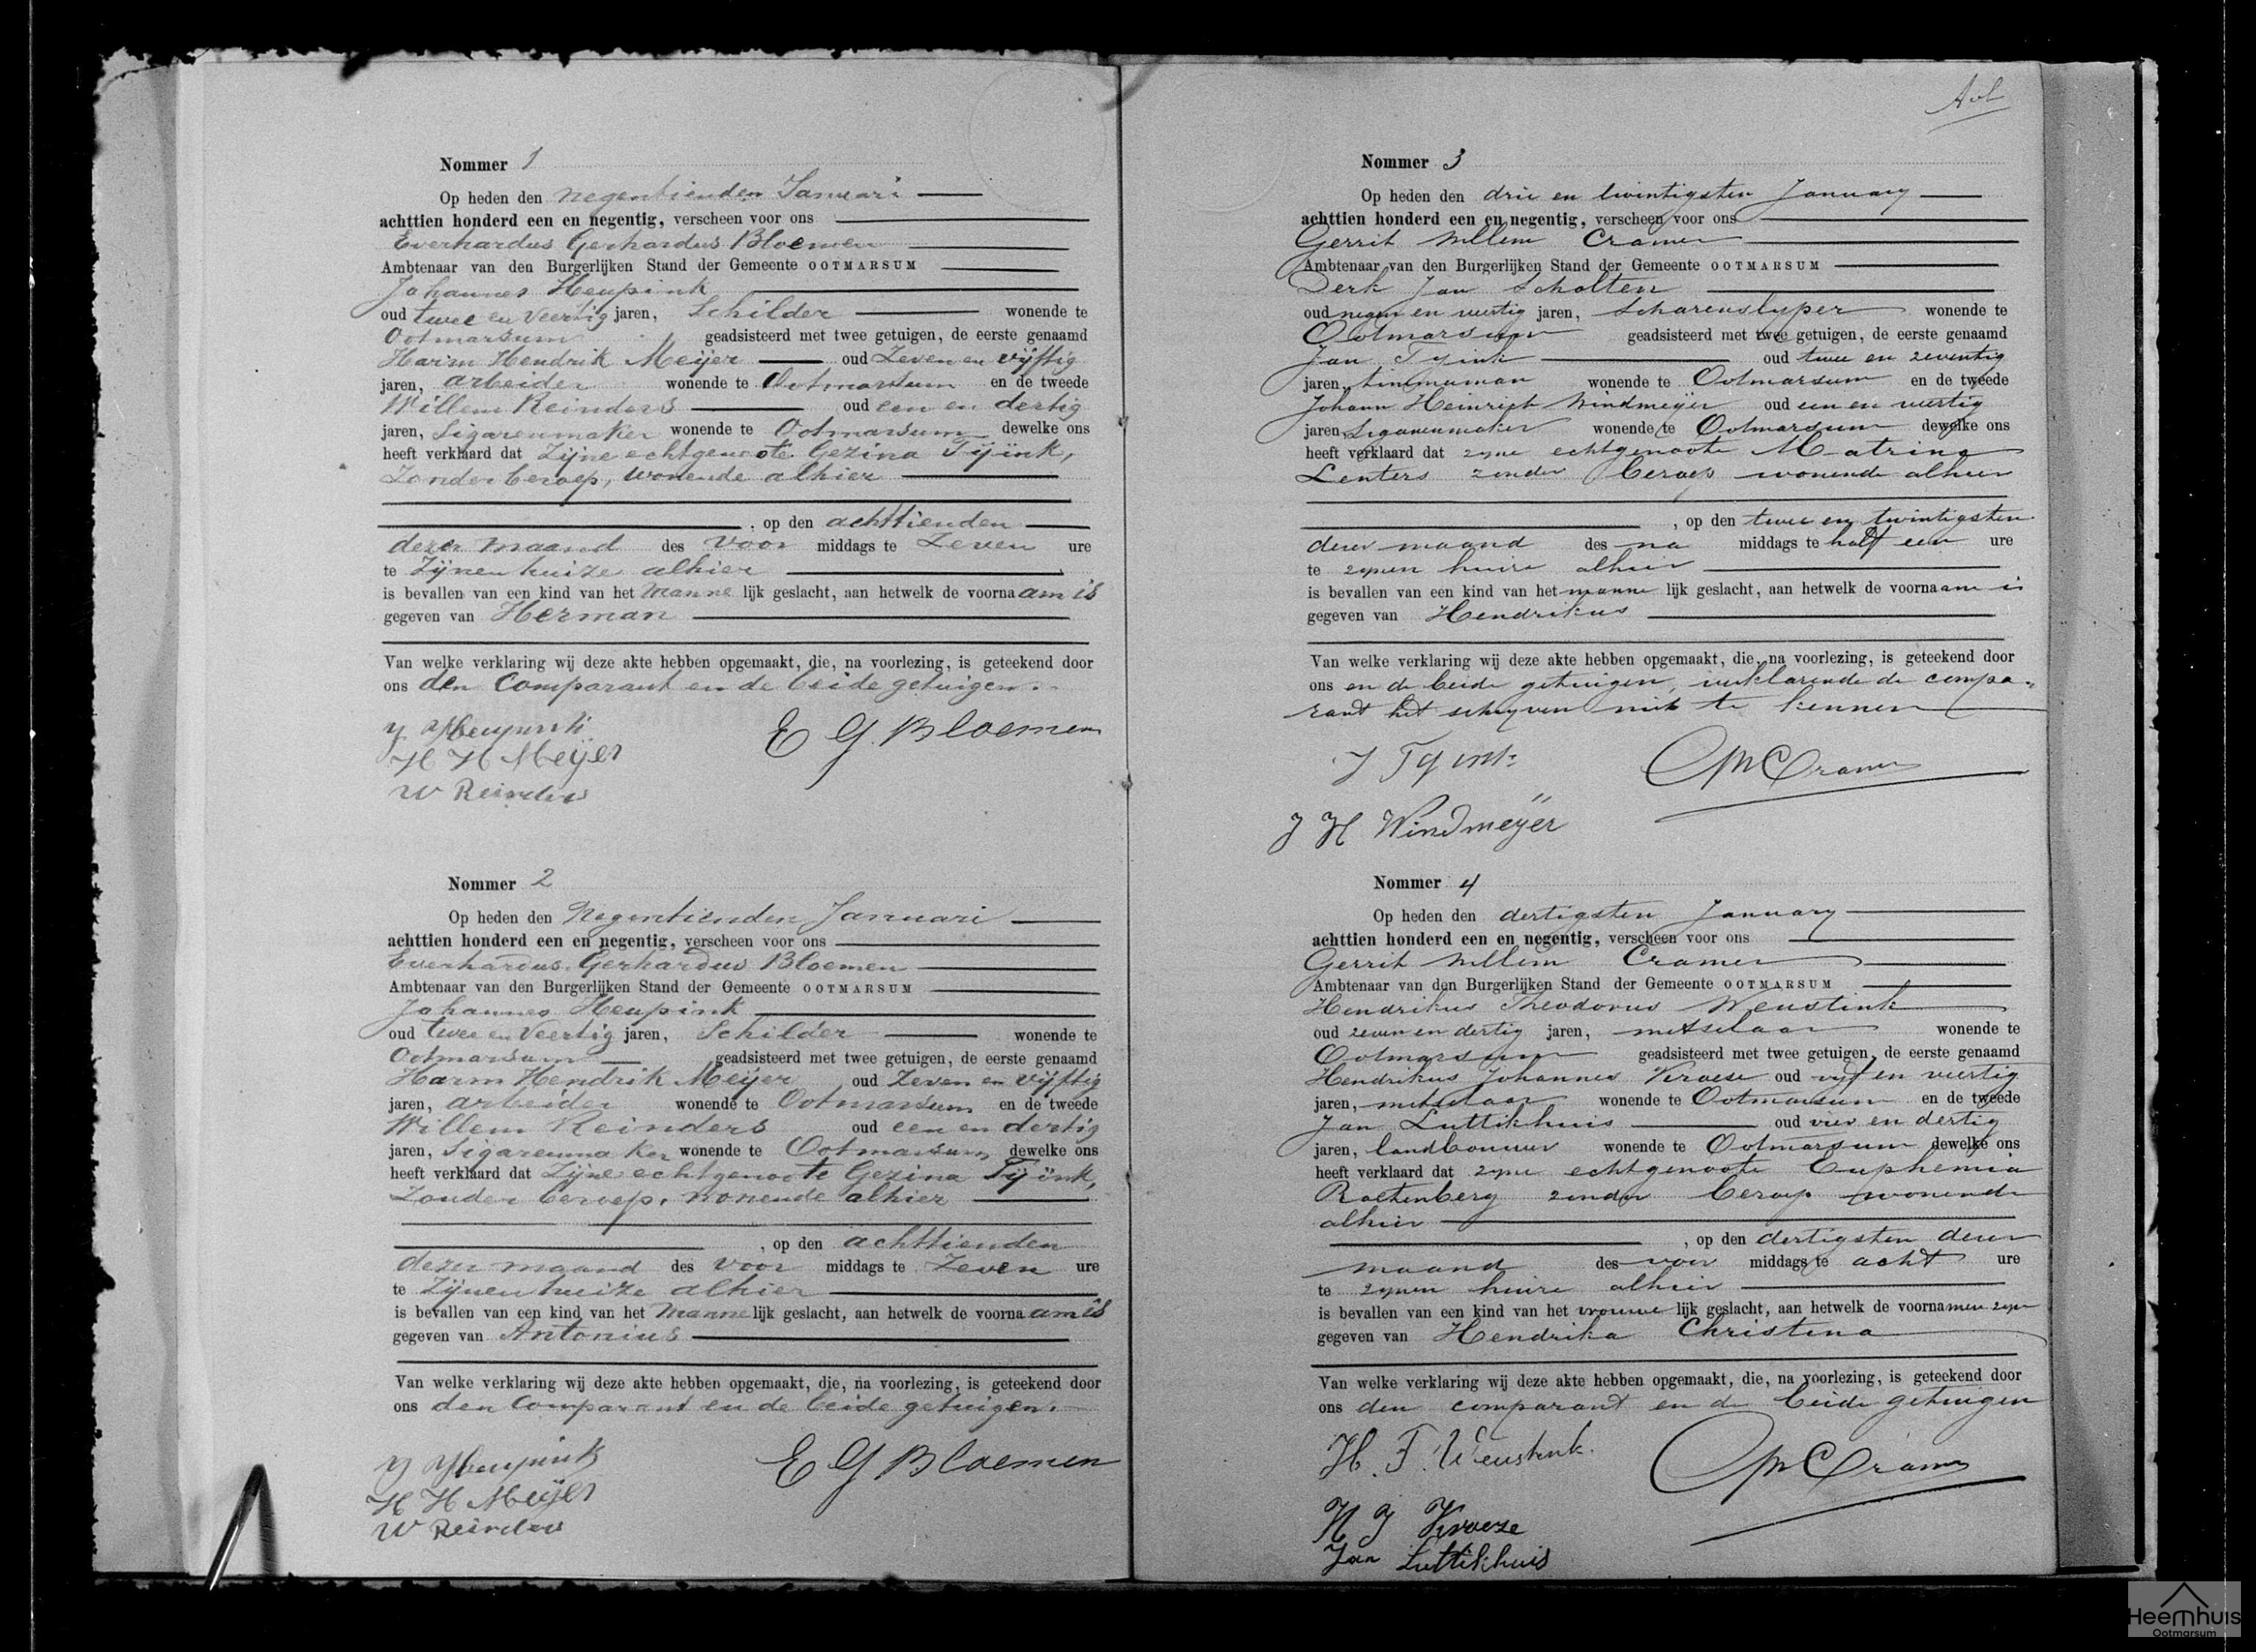 Nommer 1
Op heden den negentienden Januari
achttien honderd een en negentig, verscheen voor ons
Everhardus Gerhardus Bloemen
Ambtenaar van den Burgerlijken Stand der Gemeente OOTMARSUM
Johannes Heupink
oud twee en Veertig jaren, Schilder wonende te
Ootmarsum geadsisteerd met twee getuigen, de eerste genaamd
Harm Hendrik Meijer oud Zeven en vijftig
jaren, arbeider wonende te Ootmarsum en de tweede
Willem Reinders oud een en dertig
jaren, Sigarenmaker wonende te Ootmarsum dewelke ons
heeft verklaard dat Zijne echtgenoote Gezina Tijink,
Zonder beroep, wonende alhier
, op den achttienden
dezer maand des voor middags te Zeven ure
te Zijnen huize alhier
is bevallen van een kind van het Manne lijk geslacht, aan hetwelk de voornaam is
gegeven van Herman
Van welke verklaring wij deze akte hebben opgemaakt, die, na voorlezing, is geteekend door
ons den Comparant en de beide getuigen.
J Heupink
E G. Bloemen
H H Meijer
W Reinders
Nommer 2
Op heden den Negentienden Januari
achttien honderd een en negentig, verscheen voor ons
Everhardus Gerhardus Bloemen
Ambtenaar van den Burgerlijken Stand der Gemeente OOTMARSUM
Johannes Heupink
oud twee en Veertig jaren, Schilder wonende te
Ootmarsum geadsisteerd met twee getuigen, de eerste genaamd
Harm Hendrik Meijer oud Zeven en vijftig
jaren, arbeider wonende te Ootmarsum en de tweede
Willem Reinders oud een en dertig
jaren, Sigarenmaker wonende te Ootmarsum dewelke ons
heeft verklaard dat Zijne echtgenoote Gezina Tijink,
Zonder beroep, wonende alhier
, op den achttienden
dezer maand des voor middags te Zeven ure
te Zijnen huize alhier
is bevallen van een kind van het Manne lijk geslacht, aan hetwelk de voornaam is
gegeven van Antonius
Van welke verklaring wij deze akte hebben opgemaakt, die, na voorlezing, is geteekend door
ons den Comparant en de beide getuigen.
J Heupink
E G Bloemen
H H Meijer
W Reinders
Nommer 3
Op heden den drie en twintigsten January
achttien honderd een en negentig, verscheen voor ons
Gerrit Willem Cramer
Ambtenaar van den Burgerlijken Stand der Gemeente OOTMARSUM
Derk Jan Scholten
oud negen en veertig jaren, Scharenslyper wonende te
Ootmarsum geadsisteerd met twee getuigen, de eerste genaamd
Jan Tyink oud twee en zeventig
jaren, timmerman wonende te Ootmarsum en de tweede
Johann Heinrich Windmeijer oud een en veertig
jaren, Sigarenmaker wonende te Ootmarsum dewelke ons
heeft verklaard dat zyne echtgenoote Matrina
Lenters zonder beroep wonende alhier
, op den twee en twintigsten
dezer maand des na middags te half een ure
te zynen huize alhier
is bevallen van een kind van het manne lijk geslacht, aan hetwelk de voornaam is
gegeven van Hendrikus
Van welke verklaring wij deze akte hebben opgemaakt, die, na voorlezing, is geteekend door
ons en de beide getuigen, verklarende de compa-
rant het schryven niet te kennen
J Tyink
GWCramer
J H Windmeijer
Nommer 4
Op heden den dertigsten January
achttien honderd een en negentig, verscheen voor ons
Gerrit Willem Cramer
Ambtenaar van den Burgerlijken Stand der Gemeente OOTMARSUM
Hendrikus Theodorus Weustink
oud zeven en dertig jaren, metselaar wonende te
Ootmarsum geadsisteerd met twee getuigen, de eerste genaamd
Hendrikus Johannes Kroese oud vyf en veertig
jaren, metselaar wonende te Ootmarsum en de tweede
Jan Luttikhuis oud vier en dertig
jaren, landbouwer wonende te Ootmarsum dewelke ons
heeft verklaard dat zyne echtgenoote Euphemia
Roetenberg zonder beroep wonende
alhier
, op den dertigsten dezer
maand des voor middags te acht ure
te zynen huize alhier
is bevallen van een kind van het vrouwe lijk geslacht, aan hetwelk de voornamen zyn
gegeven van Hendrika Christina
Van welke verklaring wij deze akte hebben opgemaakt, die, na voorlezing, is geteekend door
ons den comparant en de beide getuigen
H. T. Weustink.
GWCramer
H J Kroeze
Jan Luttikhuis
Heemhuis
Ootmarsum